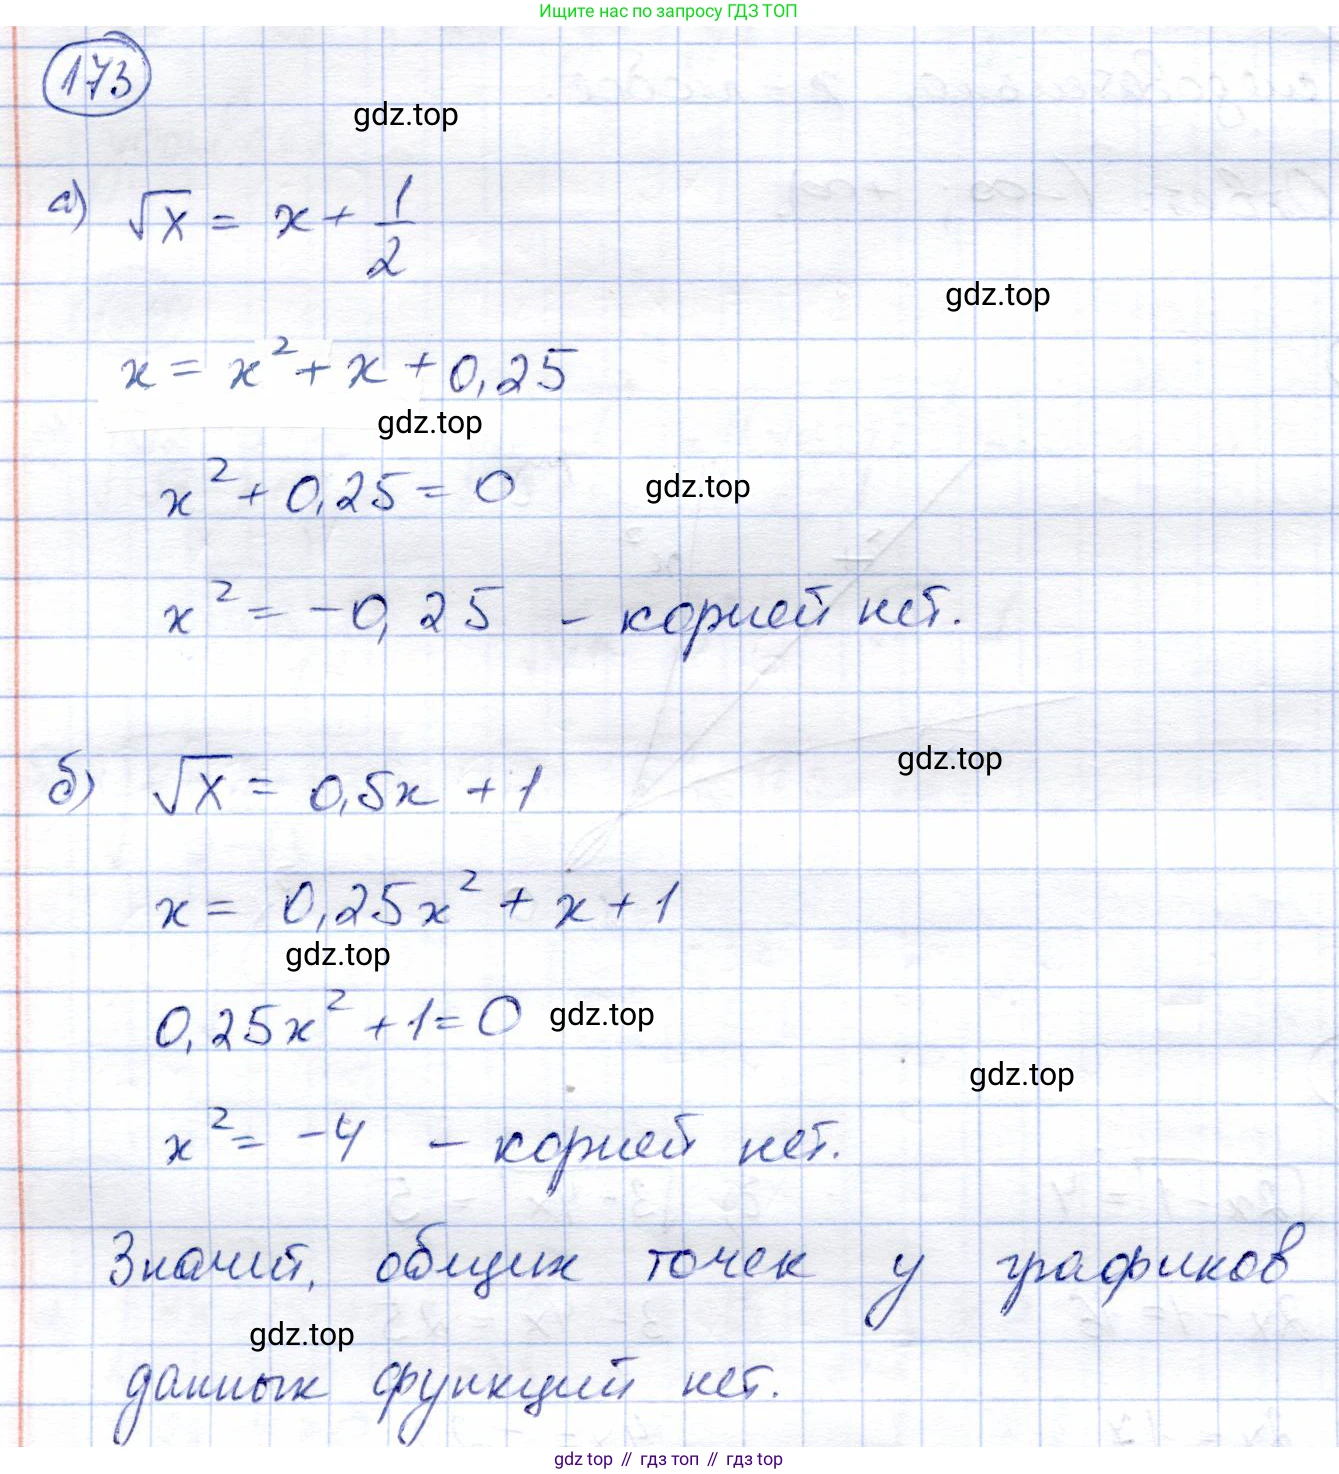 Ищите нас по запросу ГДЗ ТОП
173
gdz.top
а) √x = x + 1/2
gdz.top
x = x² + x + 0,25
gdz.top
x² + 0,25 = 0
gdz.top
x² = -0,25 - корней нет.
gdz.top
б) √x = 0,5x + 1
x = 0,25x² + x + 1
gdz.top
0,25x² + 1 = 0
gdz.top
gdz.top
x² = -4 - корней нет.
Значит, общих точек у графиков
gdz.top
данных функций нет.
gdz.top // гдз топ // gdz.top